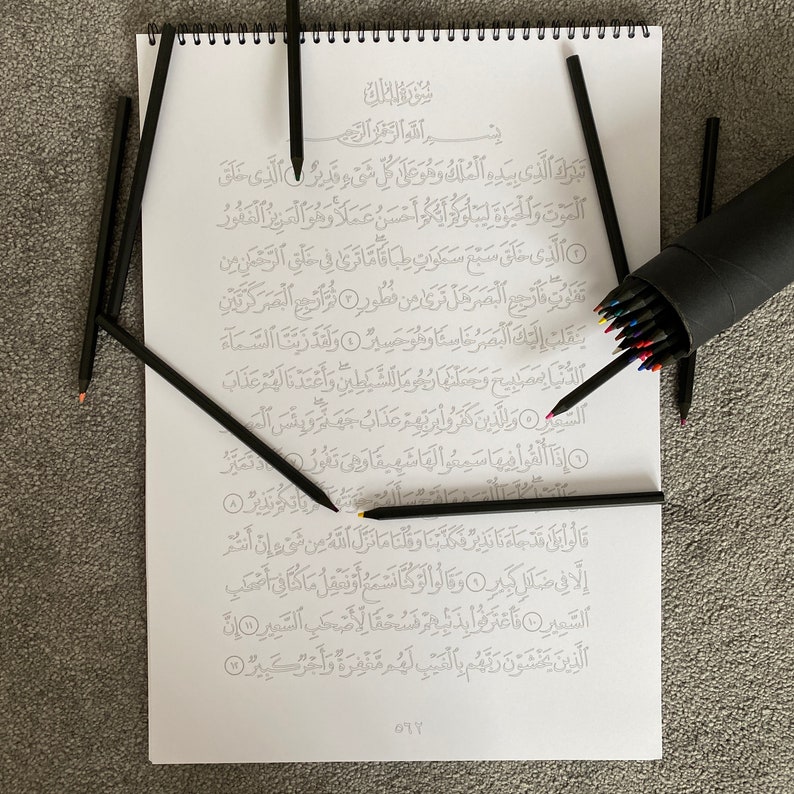 سُورَةُ الْمُلْكِ
بِسْمِ اللَّهِ الرَّحْمَٰنِ الرَّحِيمِ
تَبَٰرَكَ ٱلَّذِى بِيَدِهِ ٱلْمُلْكُ وَهُوَ عَلَىٰ كُلِّ شَىْءٍ قَدِيرٌ ١ ٱلَّذِى خَلَقَ
ٱلْمَوْتَ وَٱلْحَيَوٰةَ لِيَبْلُوَكُمْ أَيُّكُمْ أَحْسَنُ عَمَلًا ۚ وَهُوَ ٱلْعَزِيزُ ٱلْغَفُورُ
٢ ٱلَّذِى خَلَقَ سَبْعَ سَمَٰوَٰتٍ طِبَاقًا ۖ مَّا تَرَىٰ فِى خَلْقِ ٱلرَّحْمَٰنِ مِن
تَفَٰوُتٍ ۖ فَٱرْجِعِ ٱلْبَصَرَ هَلْ تَرَىٰ مِن فُطُورٍ ٣ ثُمَّ ٱرْجِعِ ٱلْبَصَرَ كَرَّتَيْنِ
يَنقَلِبْ إِلَيْكَ ٱلْبَصَرُ خَاسِئًا وَهُوَ حَسِيرٌ ٤ وَلَقَدْ زَيَّنَّا ٱلسَّمَآءَ
ٱلدُّنْيَا بِمَصَٰبِيحَ وَجَعَلْنَٰهَا رُجُومًا لِّلشَّيَٰطِينِ ۖ وَأَعْتَدْنَا لَهُمْ عَذَابَ
ٱلسَّعِيرِ ٥ وَلِلَّذِينَ كَفَرُوا۟ بِرَبِّهِمْ عَذَابُ جَهَنَّمَ ۖ وَبِئْسَ ٱلْمَصِيرُ
٦ إِذَآ أُلْقُوا۟ فِيهَا سَمِعُوا۟ لَهَا شَهِيقًا وَهِىَ تَفُورُ ٧ تَكَادُ تَمَيَّزُ
مِنَ ٱلْغَيْظِ ۖ كُلَّمَآ أُلْقِىَ فِيهَا فَوْجٌ سَأَلَهُمْ خَزَنَتُهَآ أَلَمْ يَأْتِكُمْ نَذِيرٌ ٨
قَالُوا۟ بَلَىٰ قَدْ جَآءَنَا نَذِيرٌ فَكَذَّبْنَا وَقُلْنَا مَا نَزَّلَ ٱللَّهُ مِن شَىْءٍ إِنْ أَنتُمْ
إِلَّا فِى ضَلَٰلٍ كَبِيرٍ ٩ وَقَالُوا۟ لَوْ كُنَّا نَسْمَعُ أَوْ نَعْقِلُ مَا كُنَّا فِىٓ أَصْحَٰبِ
ٱلسَّعِيرِ ١٠ فَٱعْتَرَفُوا۟ بِذَنۢبِهِمْ فَسُحْقًا لِّأَصْحَٰبِ ٱلسَّعِيرِ ١١ إِنَّ
ٱلَّذِينَ يَخْشَوْنَ رَبَّهُم بِٱلْغَيْبِ لَهُم مَّغْفِرَةٌ وَأَجْرٌ كَبِيرٌ ١٢
٥٦٢